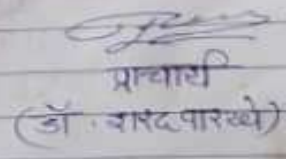 प्राचार्य
(डॉ. शरद पारखे)